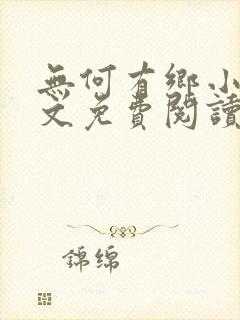 無何有鄉小
文免費閱讀
錦綿